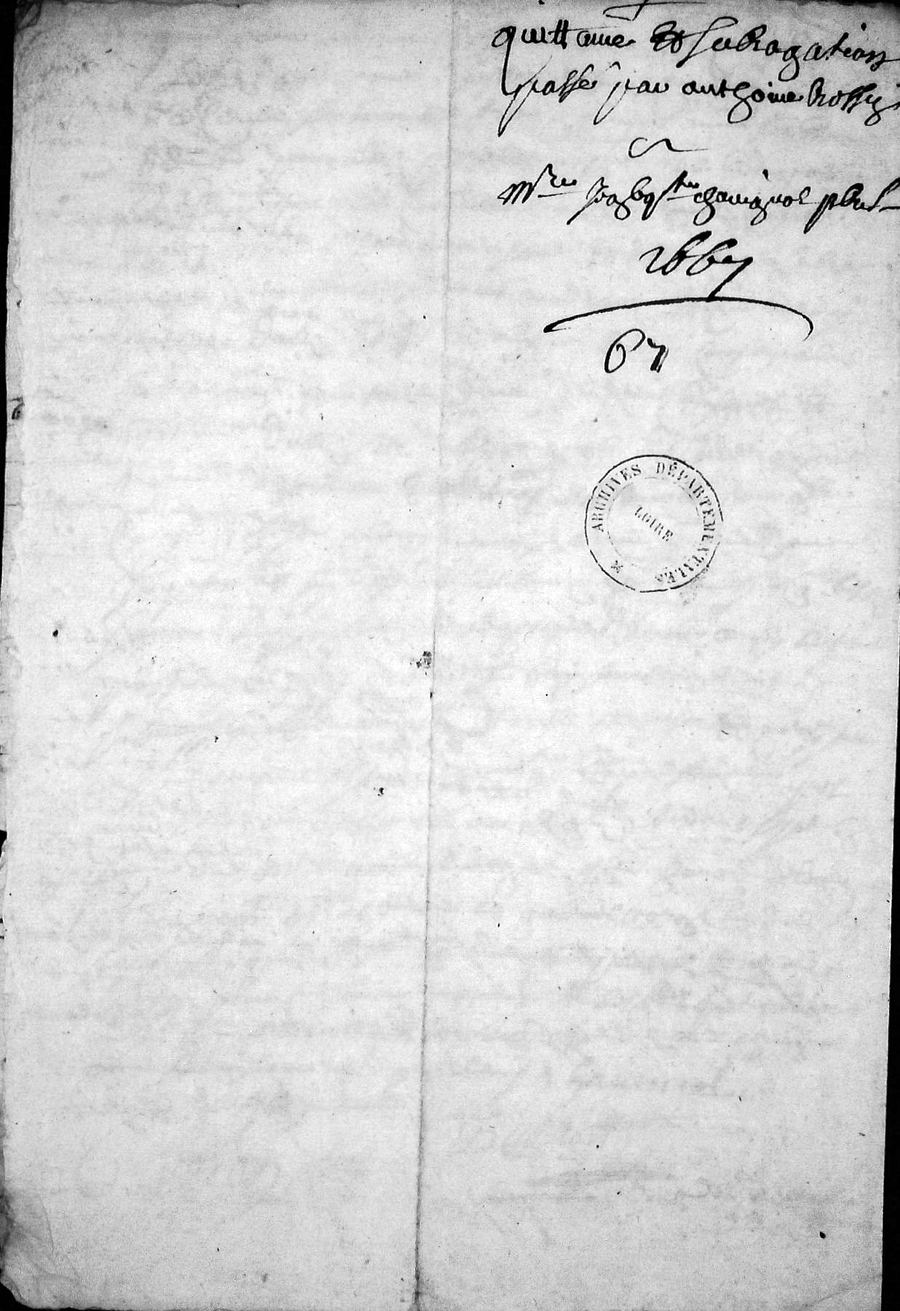 quittance et subrogation
passé par anthoine
a
Mre chavagnol pbre
1667
67
ARCHIVES DÉPARTEMENTALES
LOIRE